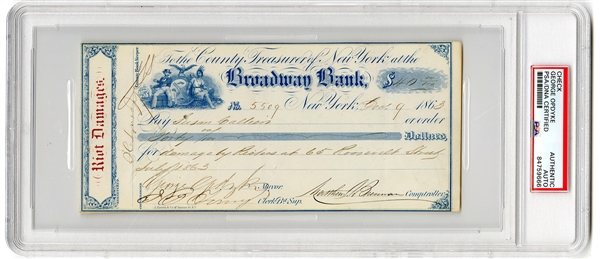 Riot Damages.
To the County Treasurer of New York at the
Broadway Bank,
No. 5509 New York, 9 1863
Pay or order
Dollars,
for damage by Rioters at 65 Roosevelt Street
July 1863
Geo. Opdyke Mayor.
Clerk Bd. Sup. Matthew T. Brennan Comptroller
CHECK
GEORGE OPDYKE
PSA/DNA CERTIFIED
PSA
AUTHENTIC
AUTO
84759666